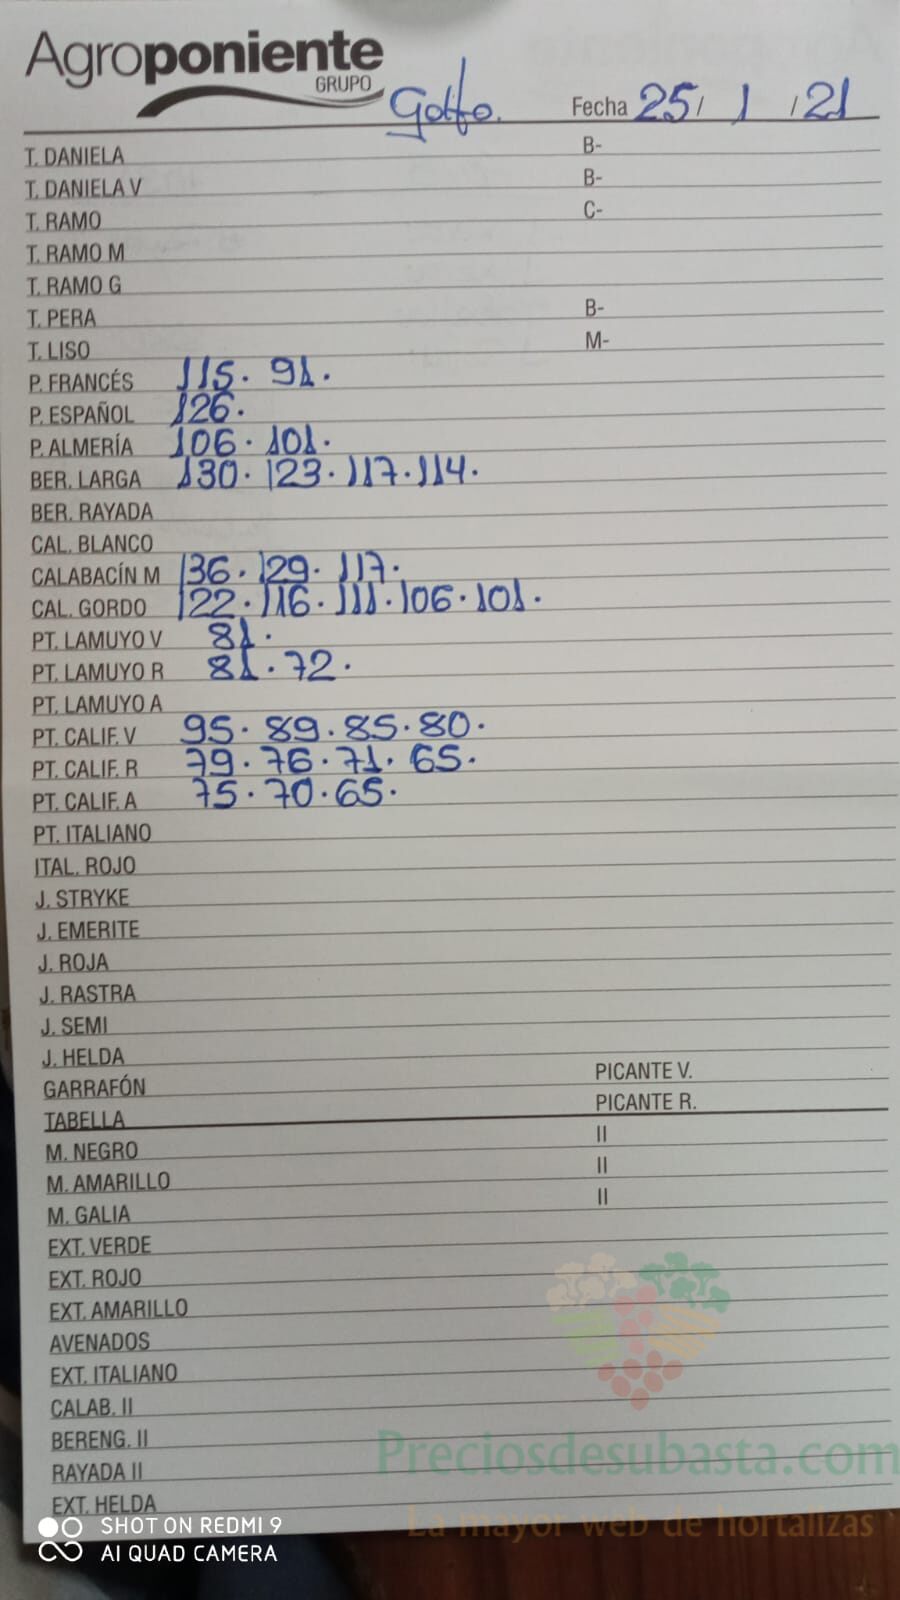 Agroponiente
GRUPO
Golfo. Fecha 25/ 1 /21
T. DANIELA B-
T. DANIELA V B-
T. RAMO C-
T. RAMO M
T. RAMO G
T. PERA B-
T. LISO M-
P. FRANCÉS 115. 91.
P. ESPAÑOL 126.
P. ALMERÍA 106. 101.
BER. LARGA 130. 123. 117. 114.
BER. RAYADA
CAL. BLANCO
CALABACÍN M 136. 129. 117.
CAL. GORDO 122. 116. 111. 106. 101.
PT. LAMUYO V 81.
PT. LAMUYO R 81. 72.
PT. LAMUYO A
PT. CALIF. V 95. 89. 85. 80.
PT. CALIF. R 79. 76. 71. 65.
PT. CALIF. A 75. 70. 65.
PT. ITALIANO
ITAL. ROJO
J. STRYKE
J. EMERITE
J. ROJA
J. RASTRA
J. SEMI
J. HELDA
GARRAFÓN PICANTE V.
TABELLA PICANTE R.
M. NEGRO II
M. AMARILLO II
M. GALIA II
EXT. VERDE
EXT. ROJO
EXT. AMARILLO
AVENADOS
EXT. ITALIANO
CALAB. II
BERENG. II
RAYADA II
EXT. HELDA
Preciosdesubasta.com
La mayor web de hortalizas
SHOT ON REDMI 9
AI QUAD CAMERA